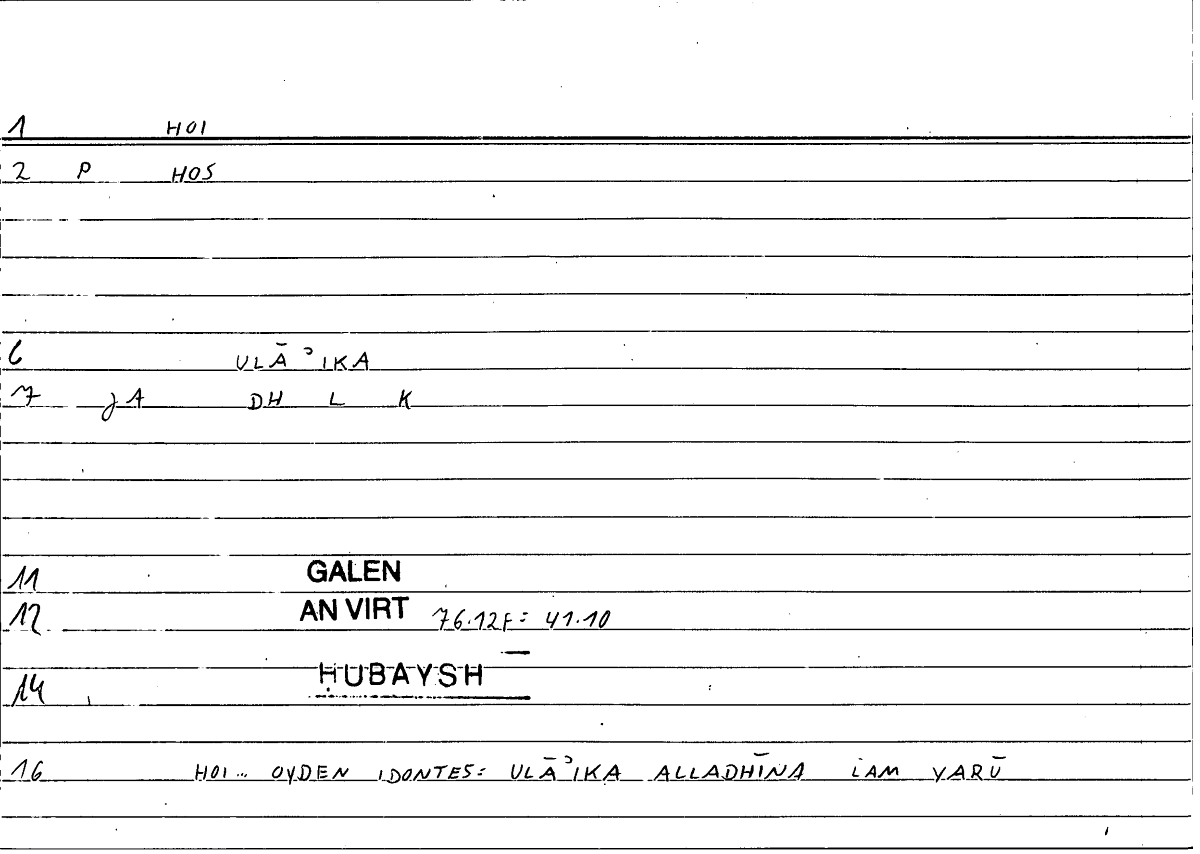 1 HOI
2 P HOS
6 ULĀʾIKA
7 JA DH L K
11 GALEN
12 AN VIRT 76.12F = 41.10
14 ḤUBAYSH
16 HOI... OYDEN IDONTES: ULĀʾIKA ALLADHĪNA LAM YARŪ